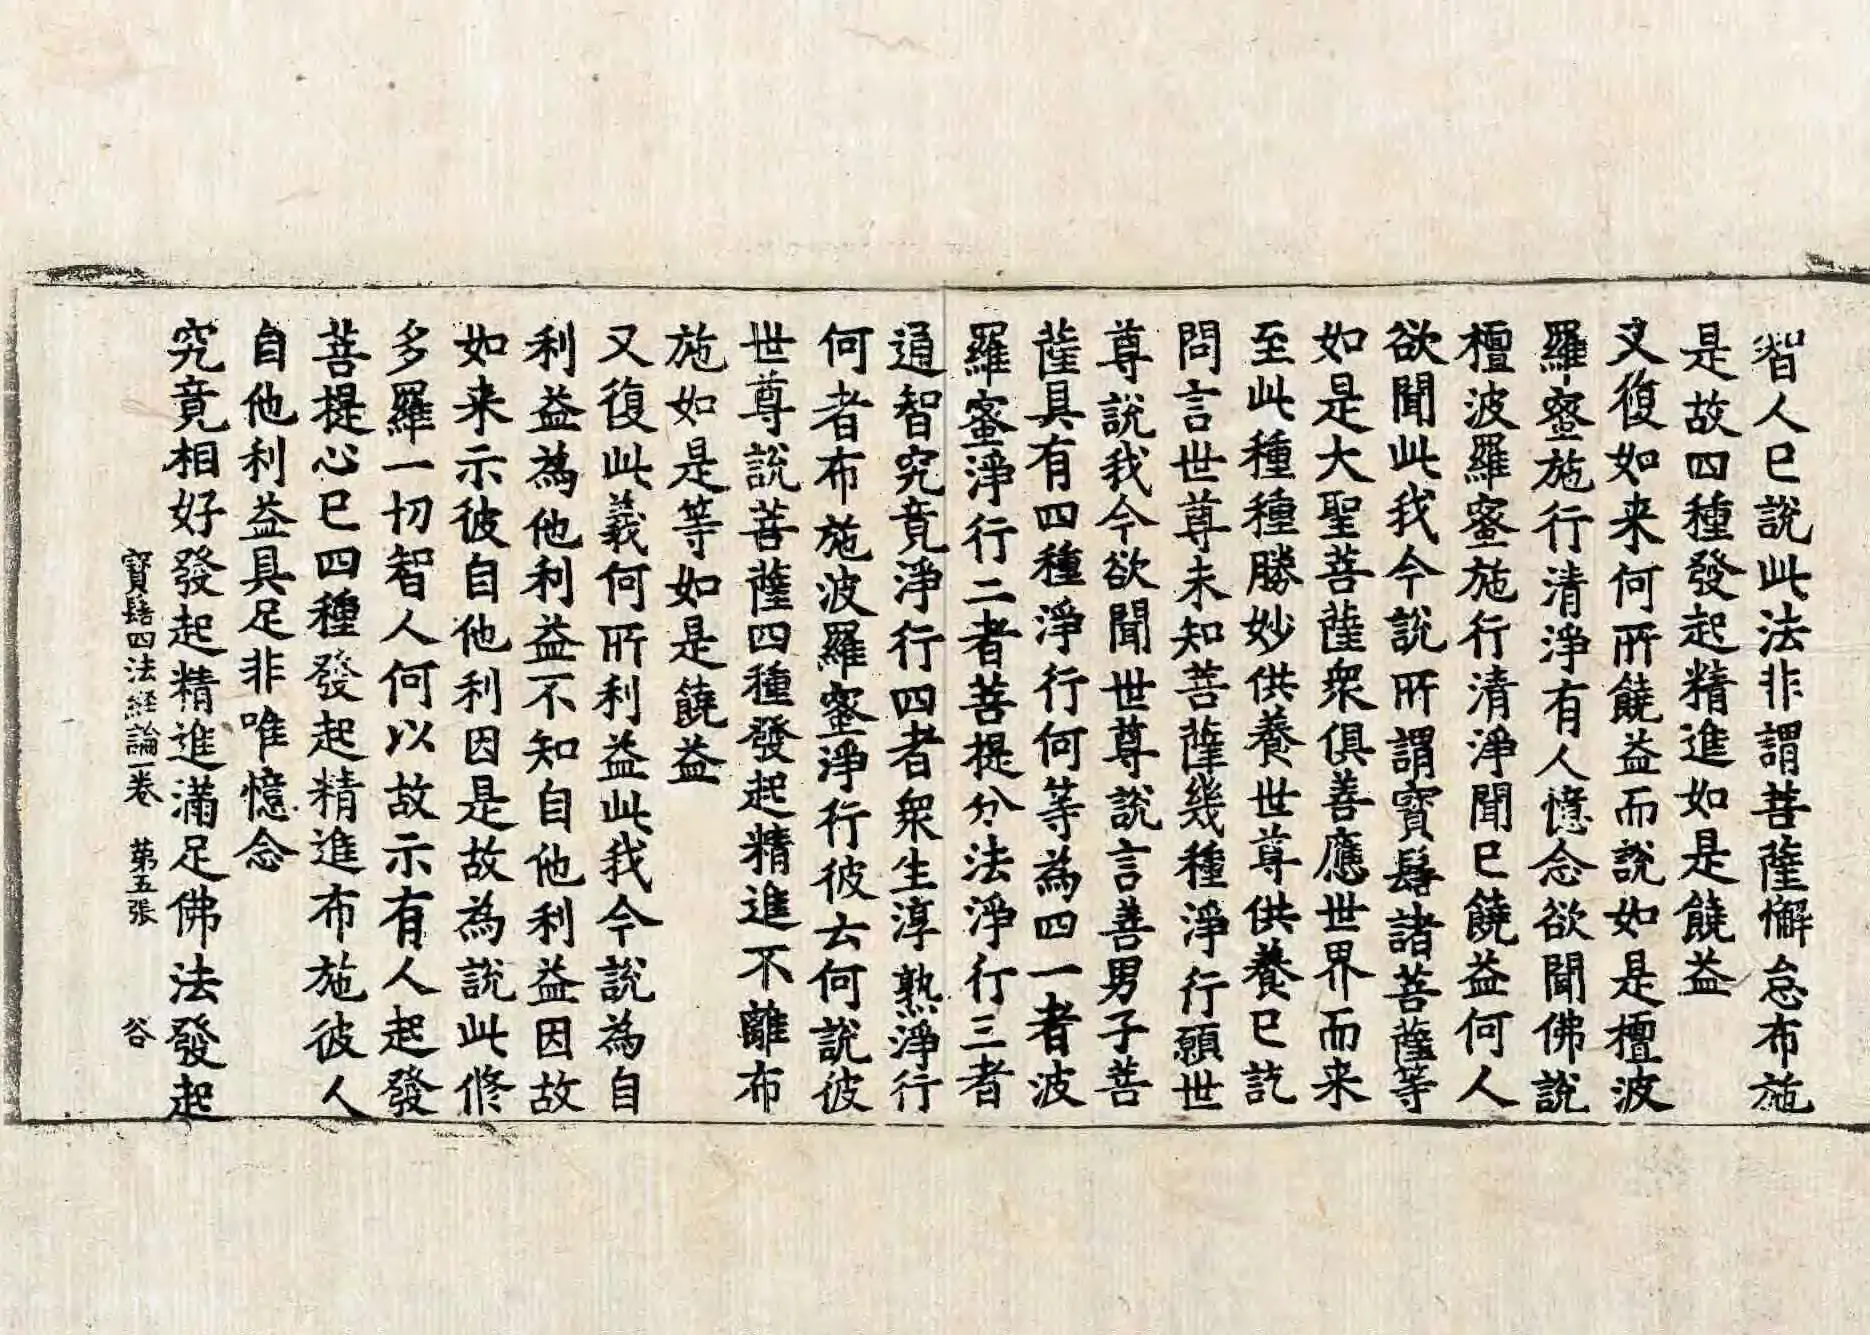 智人已說此法非謂菩薩懈怠布施
是故四種發起精進如是饒益
又復如来何所饒益而說如是檀波
羅蜜施行清淨有人憶念欲聞佛說
檀波羅蜜施行清淨聞已饒益何人
欲聞此我今說所謂寶髻諸菩薩等
如是大聖菩薩衆俱善應世界而来
至此種種勝妙供養世尊供養已訖
問言世尊未知菩薩幾種淨行願世
尊說我今欲聞世尊說言善男子菩
薩具有四種淨行何等為四一者波
羅蜜淨行二者菩提分法淨行三者
通智究竟淨行四者衆生淳熟淨行
何者布施波羅蜜淨行彼云何說彼
世尊說菩薩四種發起精進不離布
施如是等如是饒益
又復此義何所利益此我今說為自
利益為他利益不知自他利益因故
如来示彼自他利因是故為說此修
多羅一切智人何以故示有人起發
菩提心已四種發起精進布施彼人
自他利益具足非唯憶念
究竟相好發起精進滿足佛法發起
寶髻四法経論一卷 第五張 谷